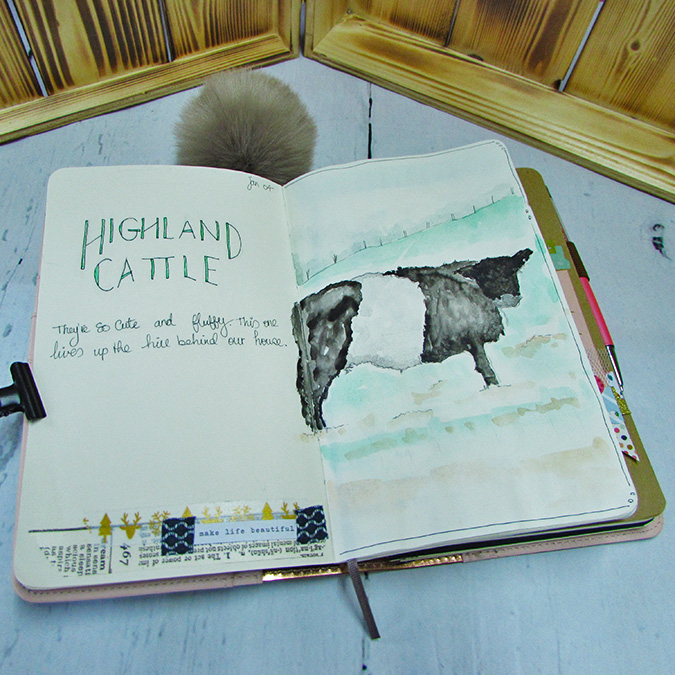 Jan 04
HIGHLAND
CATTLE
They're so cute and fluffy. This one
lives up the hill behind our house.
make life beautiful
467
ream
1. The act or power of